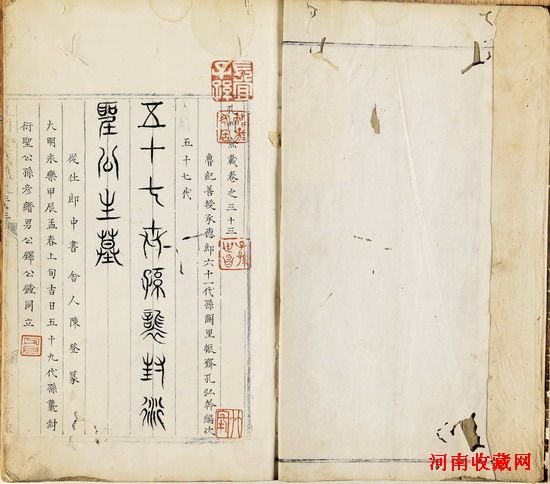 長宜子孫
孔
載卷之三十三
魯紀善授承德郎六十一代孫闕里振齋孔弘幹編次
五十七代
五十七世孫襲封衍
聖公之墓
從仕郎中書舍人陳登篆
大明永樂甲辰孟春上旬吉日五十九代孫襲封
衍聖公孫彥縉男公鐸公鏜同立
河南收藏网